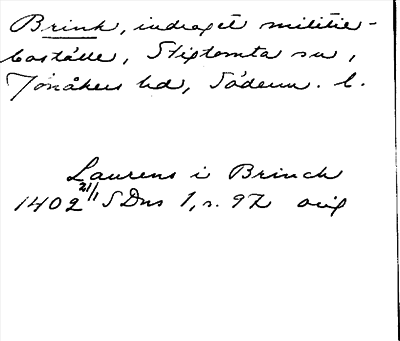 Brink, indraget militie-
boställe, Stigtomta sn,
Jönåkers hd, Söderm. l.
Laurens i Brinck
1402 21/1 SDns 1, s. 92 orig